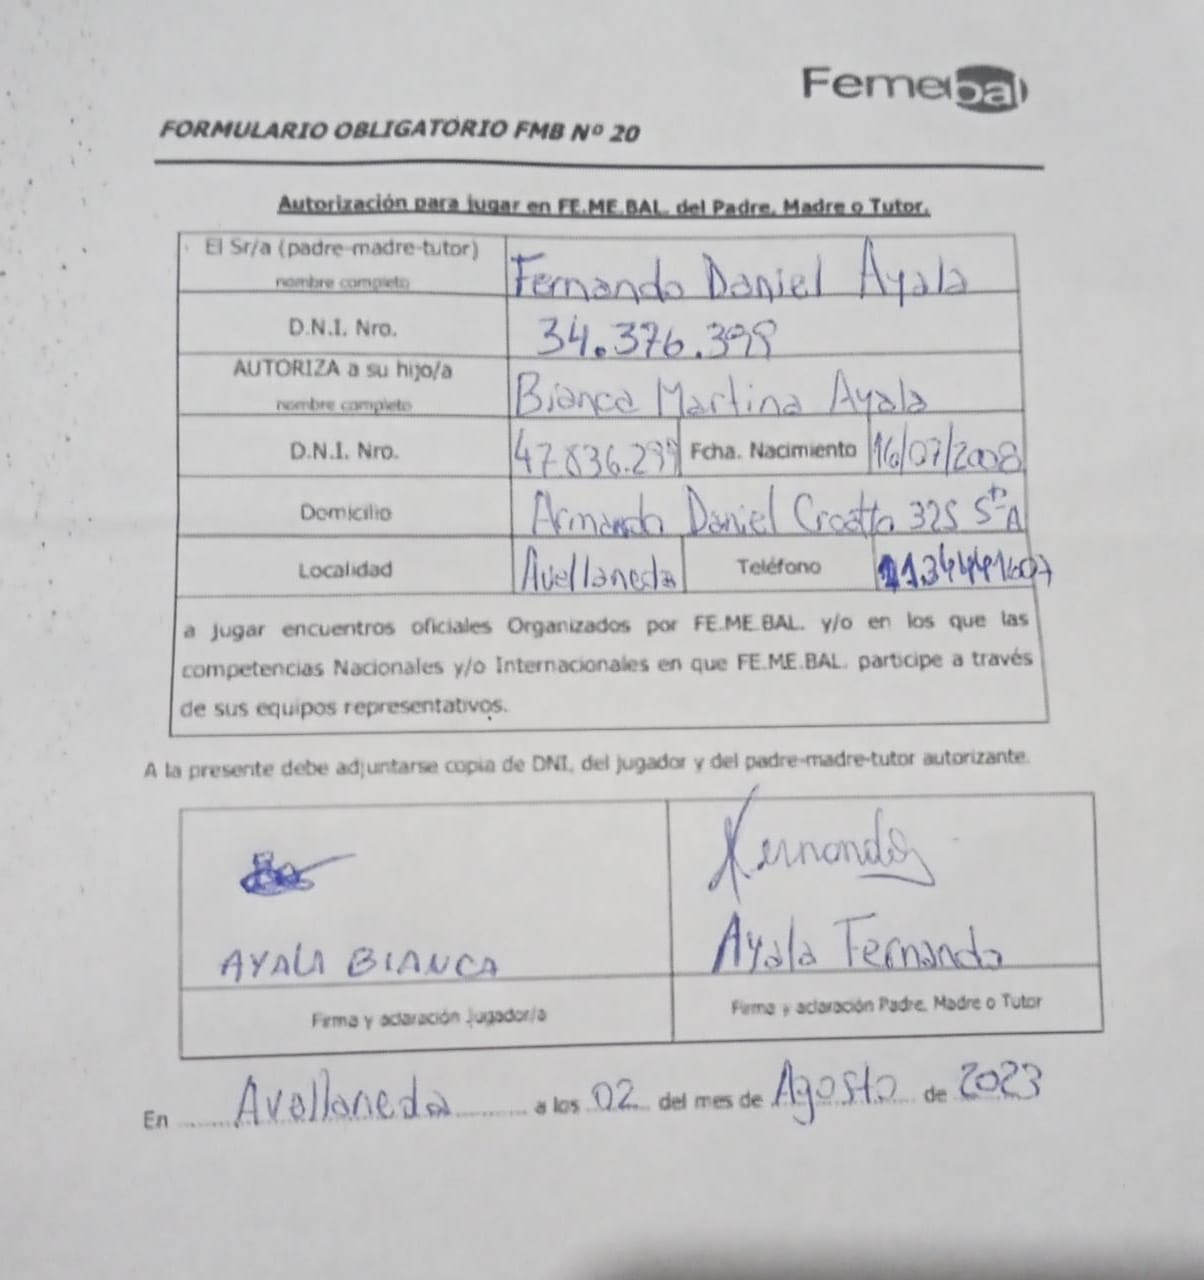 Femebal
FORMULARIO OBLIGATORIO FMB Nº 20
Autorización para jugar en FE.ME.BAL. del Padre, Madre o Tutor.
El Sr/a (padre-madre-tutor)
nombre completo
Fernando Daniel Ayala
D.N.I. Nro.
34.376.399
AUTORIZA a su hijo/a
nombre completo
Bianca Martina Ayala
D.N.I. Nro.
47.836.299
Fcha. Nacimiento
16/07/2008
Domicilio
Armando Daniel Croatto 325 5to A
Localidad
Avellaneda
Teléfono
a jugar encuentros oficiales Organizados por FE.ME.BAL. y/o en los que las
competencias Nacionales y/o Internacionales en que FE.ME.BAL. participe a través
de sus equipos representativos.
A la presente debe adjuntarse copia de DNI, del jugador y del padre-madre-tutor autorizante.
AYALA BIANCA
Firma y aclaración jugador/a
Fernando
Ayala Fernando
Firma y aclaración Padre, Madre o Tutor
En Avellaneda a los 02 del mes de Agosto de 2023